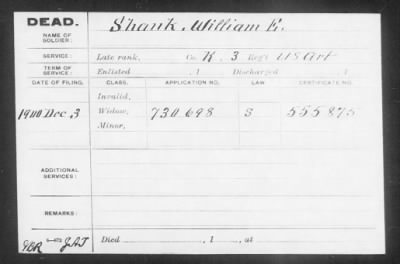 DEAD.
NAME OF SOLDIER:
Shank, William E.
SERVICE:
Late rank, Co. K. 3 Reg't US Art
TERM OF SERVICE:
Enlisted , 1 Discharged , 1
DATE OF FILING. CLASS. APPLICATION NO. LAW. CERTIFICATE NO.
Invalid,
1900 Dec. 3 Widow, 730698 S 555875
Minor,
ADDITIONAL SERVICES:
REMARKS:
Died , 1 , at